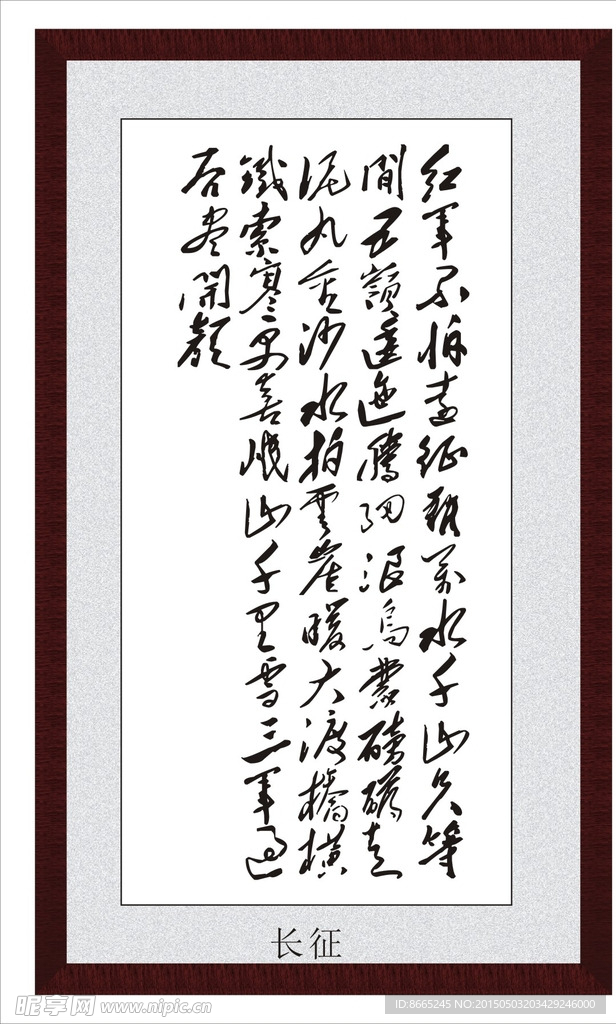 紅軍不怕遠征難萬水千山只等
閒五嶺逶迤騰細浪烏蒙磅礴走
泥丸金沙水拍雲崖暖大渡橋橫
鐵索寒更喜岷山千里雪三軍過
后盡開顏
长征
昵享网 www.nipic.cn
ID:8665245 NO:20150503203429246000